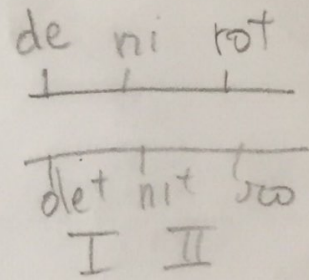 de ni rot
det nit ro
I II